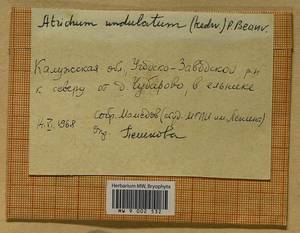 Atrichum undulatum (Hedw.) P. Beauv.
Калужская обл., Угодско-Заводской р-н
к северу от д. Чубарово, в ельнике
14.VI.1968 Собр. (студ. МГПИ им. Ленина)
Опр. Пешкова
Herbarium MW, Bryophyta
MW 9 002 532